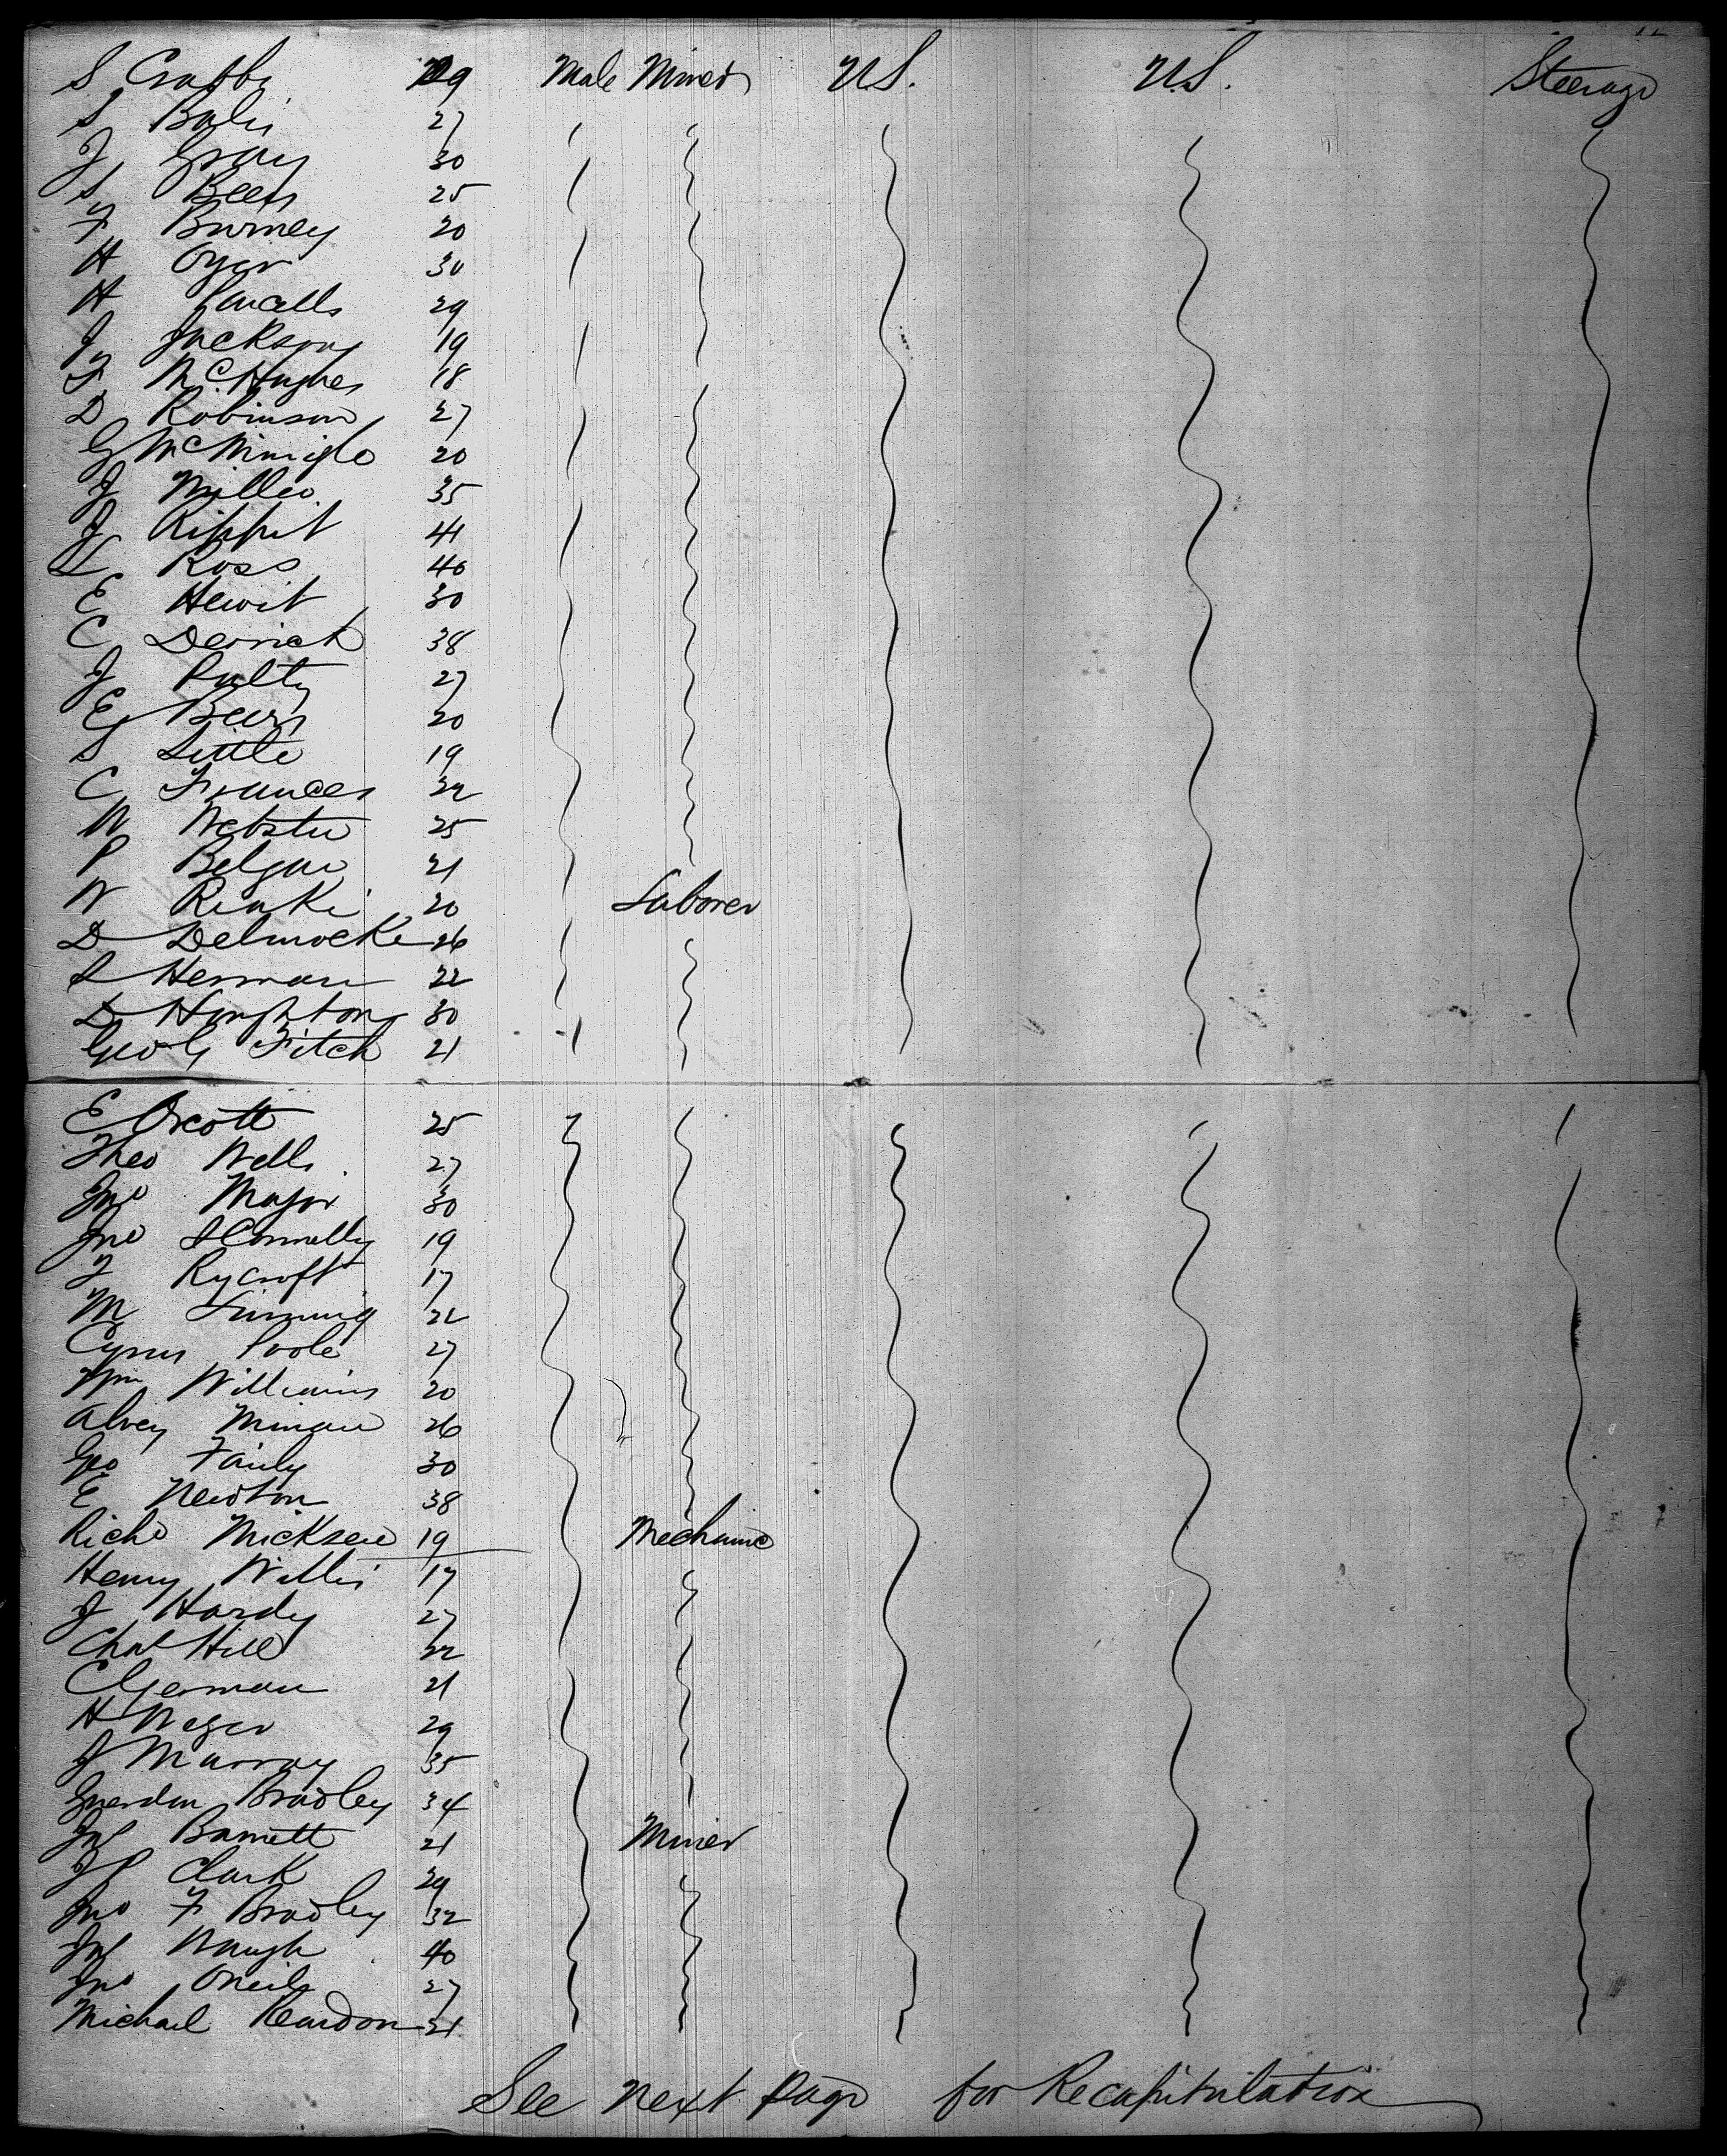 S 29 Male Miner U.S. U.S. Steerage
S 27
J Gray 30
S Beers 25
F Burney 20
H Oyer 30
H 29
J Jackson 19
F McHughes 18
D Robinson 27
G 20
J Miller 35
J Rippit 41
L Ross 40
E Hewit 30
C Derrick 38
J 27
E Beers 20
S Little 19
C Frances
W Webster 25
P Belgau 21
W 20 Laborer
D 26
S Herman 22
D Houghton 30
Geo G Fitch 21
E Orcott 25
Theo Wells 27
Jno Major 30
Jno S Connelly 19
Rycroft 17
M 22
Cyrus Poole 27
Wm Williams 20
Alvey 26
Geo Fairly 30
E Newton 38
Richd 19 Mechanic
Henry Willis 17
J Hardy 27
Chas Hill 22
C German 21
H 29
J Murray 35
Guerdon Bradley 34
Barnett 21 Miner
Clark 29
Jno F Bradley 32
Waugh 40
Jno Oneils 27
Michael Reardon 21
See next page for Recapitulation